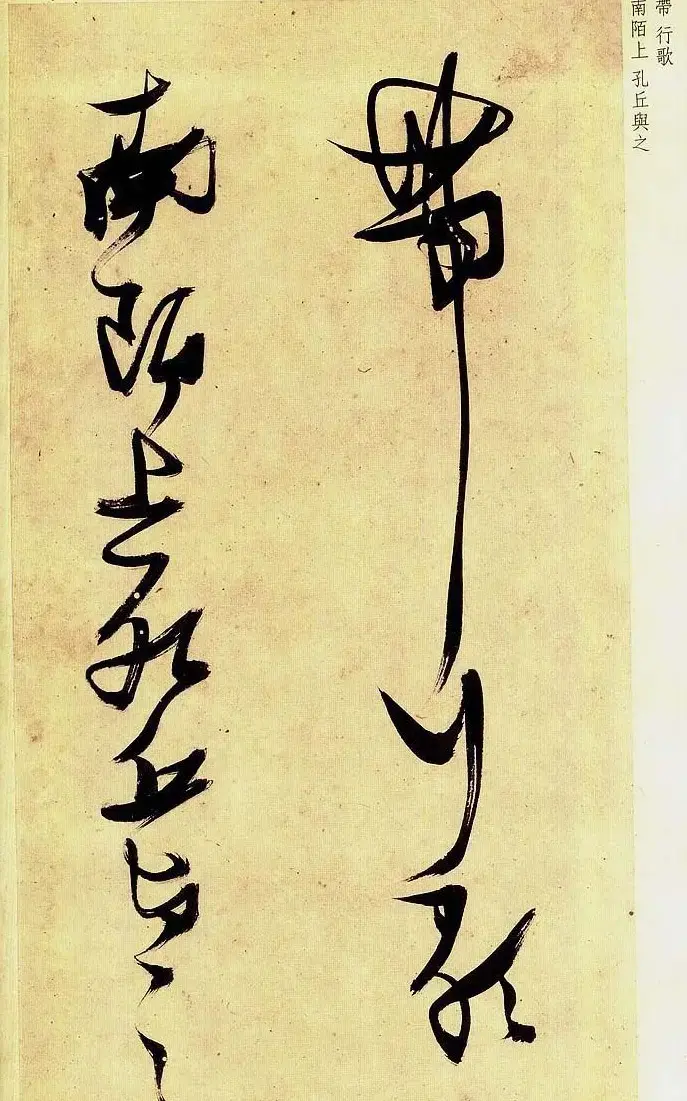 帶 行歌
南陌上 孔丘與之
帶行歌
南陌上孔丘與之